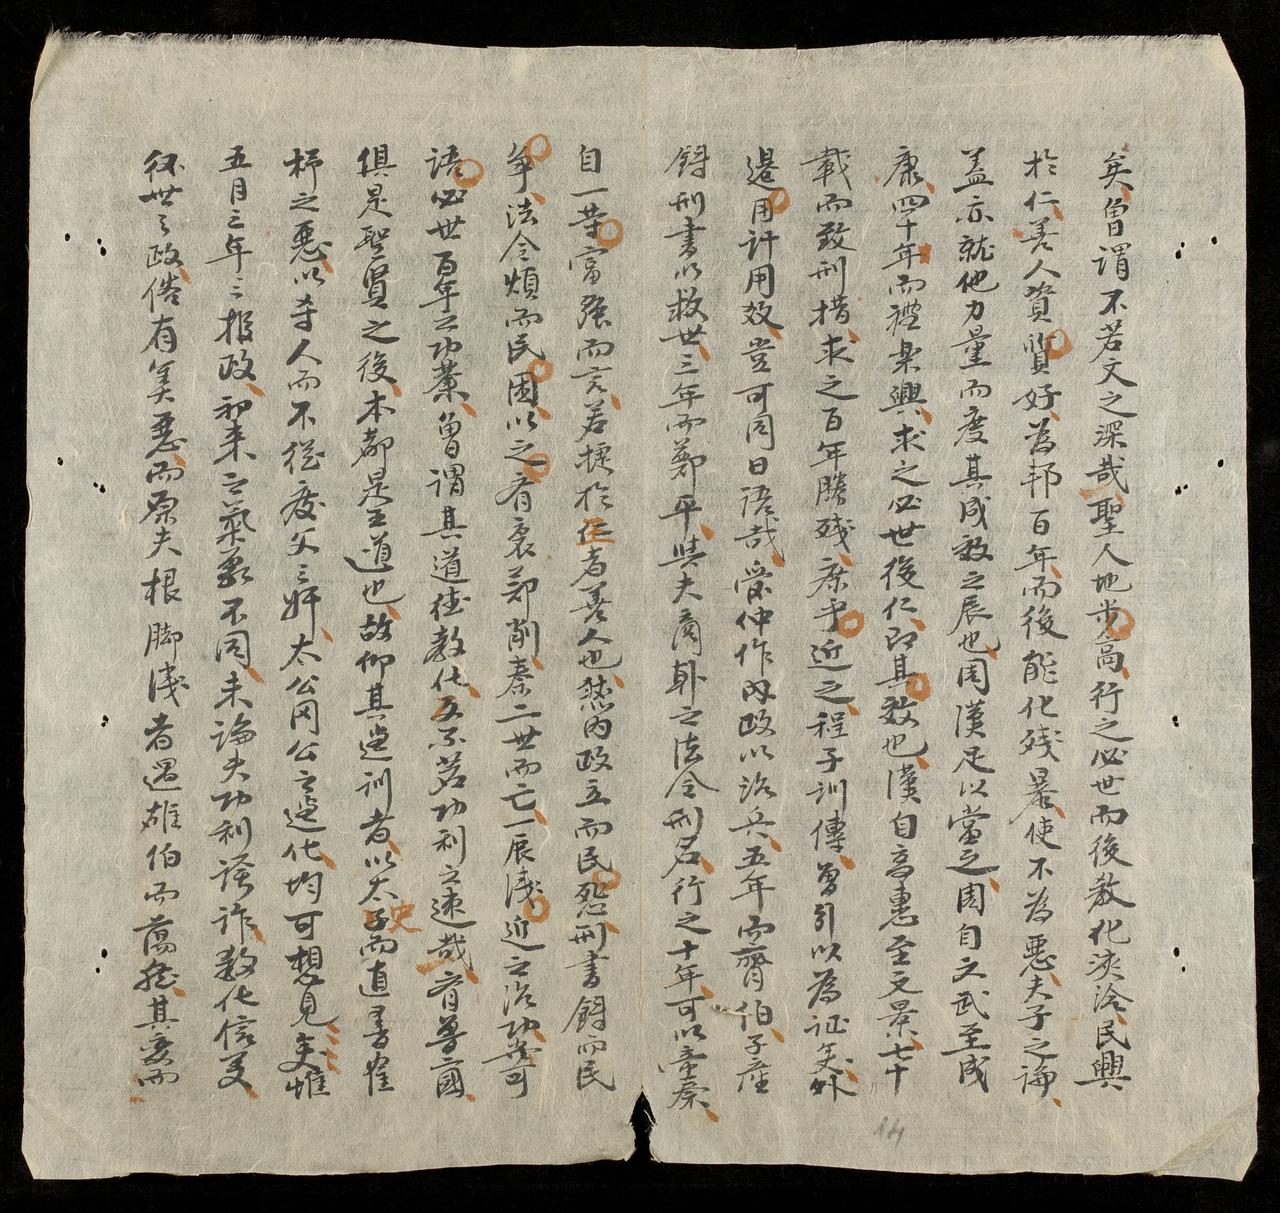 矣曾謂不若文之深哉聖人地步高行之必世而後教化浹洽民興
於仁善人資質好為邦百年而後能化殘暴使不為惡夫子之論
蓋亦就他力量而度其成效之辰也周漢足以當之周自文武至成
康四十年而禮樂興求之必世後仁即其效也漢自高惠至文景七十
載而致刑措求之百年勝殘庶乎近之程子訓傳曾引以為証矣外
邊用計用效豈可同日語哉管仲作內政以治兵五年而齊伯子產
鑄刑書以救世三年而鄭平與夫商鞅之法令刑名行之十年可以帝秦
自一苛富強而言若捷於仁者善人也然內政立而民怨刑書鑄而民
爭法令煩而民困以之齊衰鄭削秦二世而亡一辰淺近之治功豈可
語必世百年之功業曾謂其道德教化反不若功利之速哉齊魯二國
俱是聖賢之後本都是王道也故仰其遺訓者以太子史而直書崔
杼之惡以寺人而不從慶父之奸太公周公之遺化均可想見矣惟
五月三年之報政初來之氣象不同未論夫功利譎詐教化信義
於世之政俗有美惡而原夫根脚淺者遇雄伯而蕩然其變而